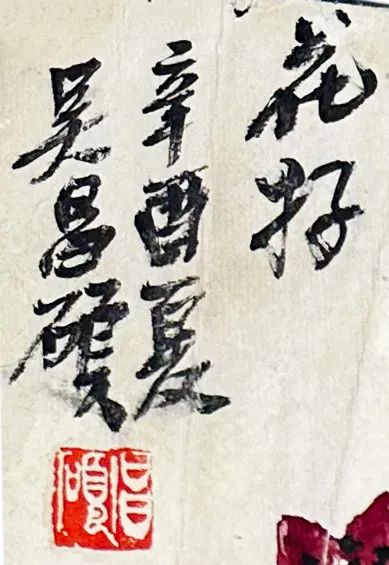 花好
辛酉夏
吴昌碩
昌碩